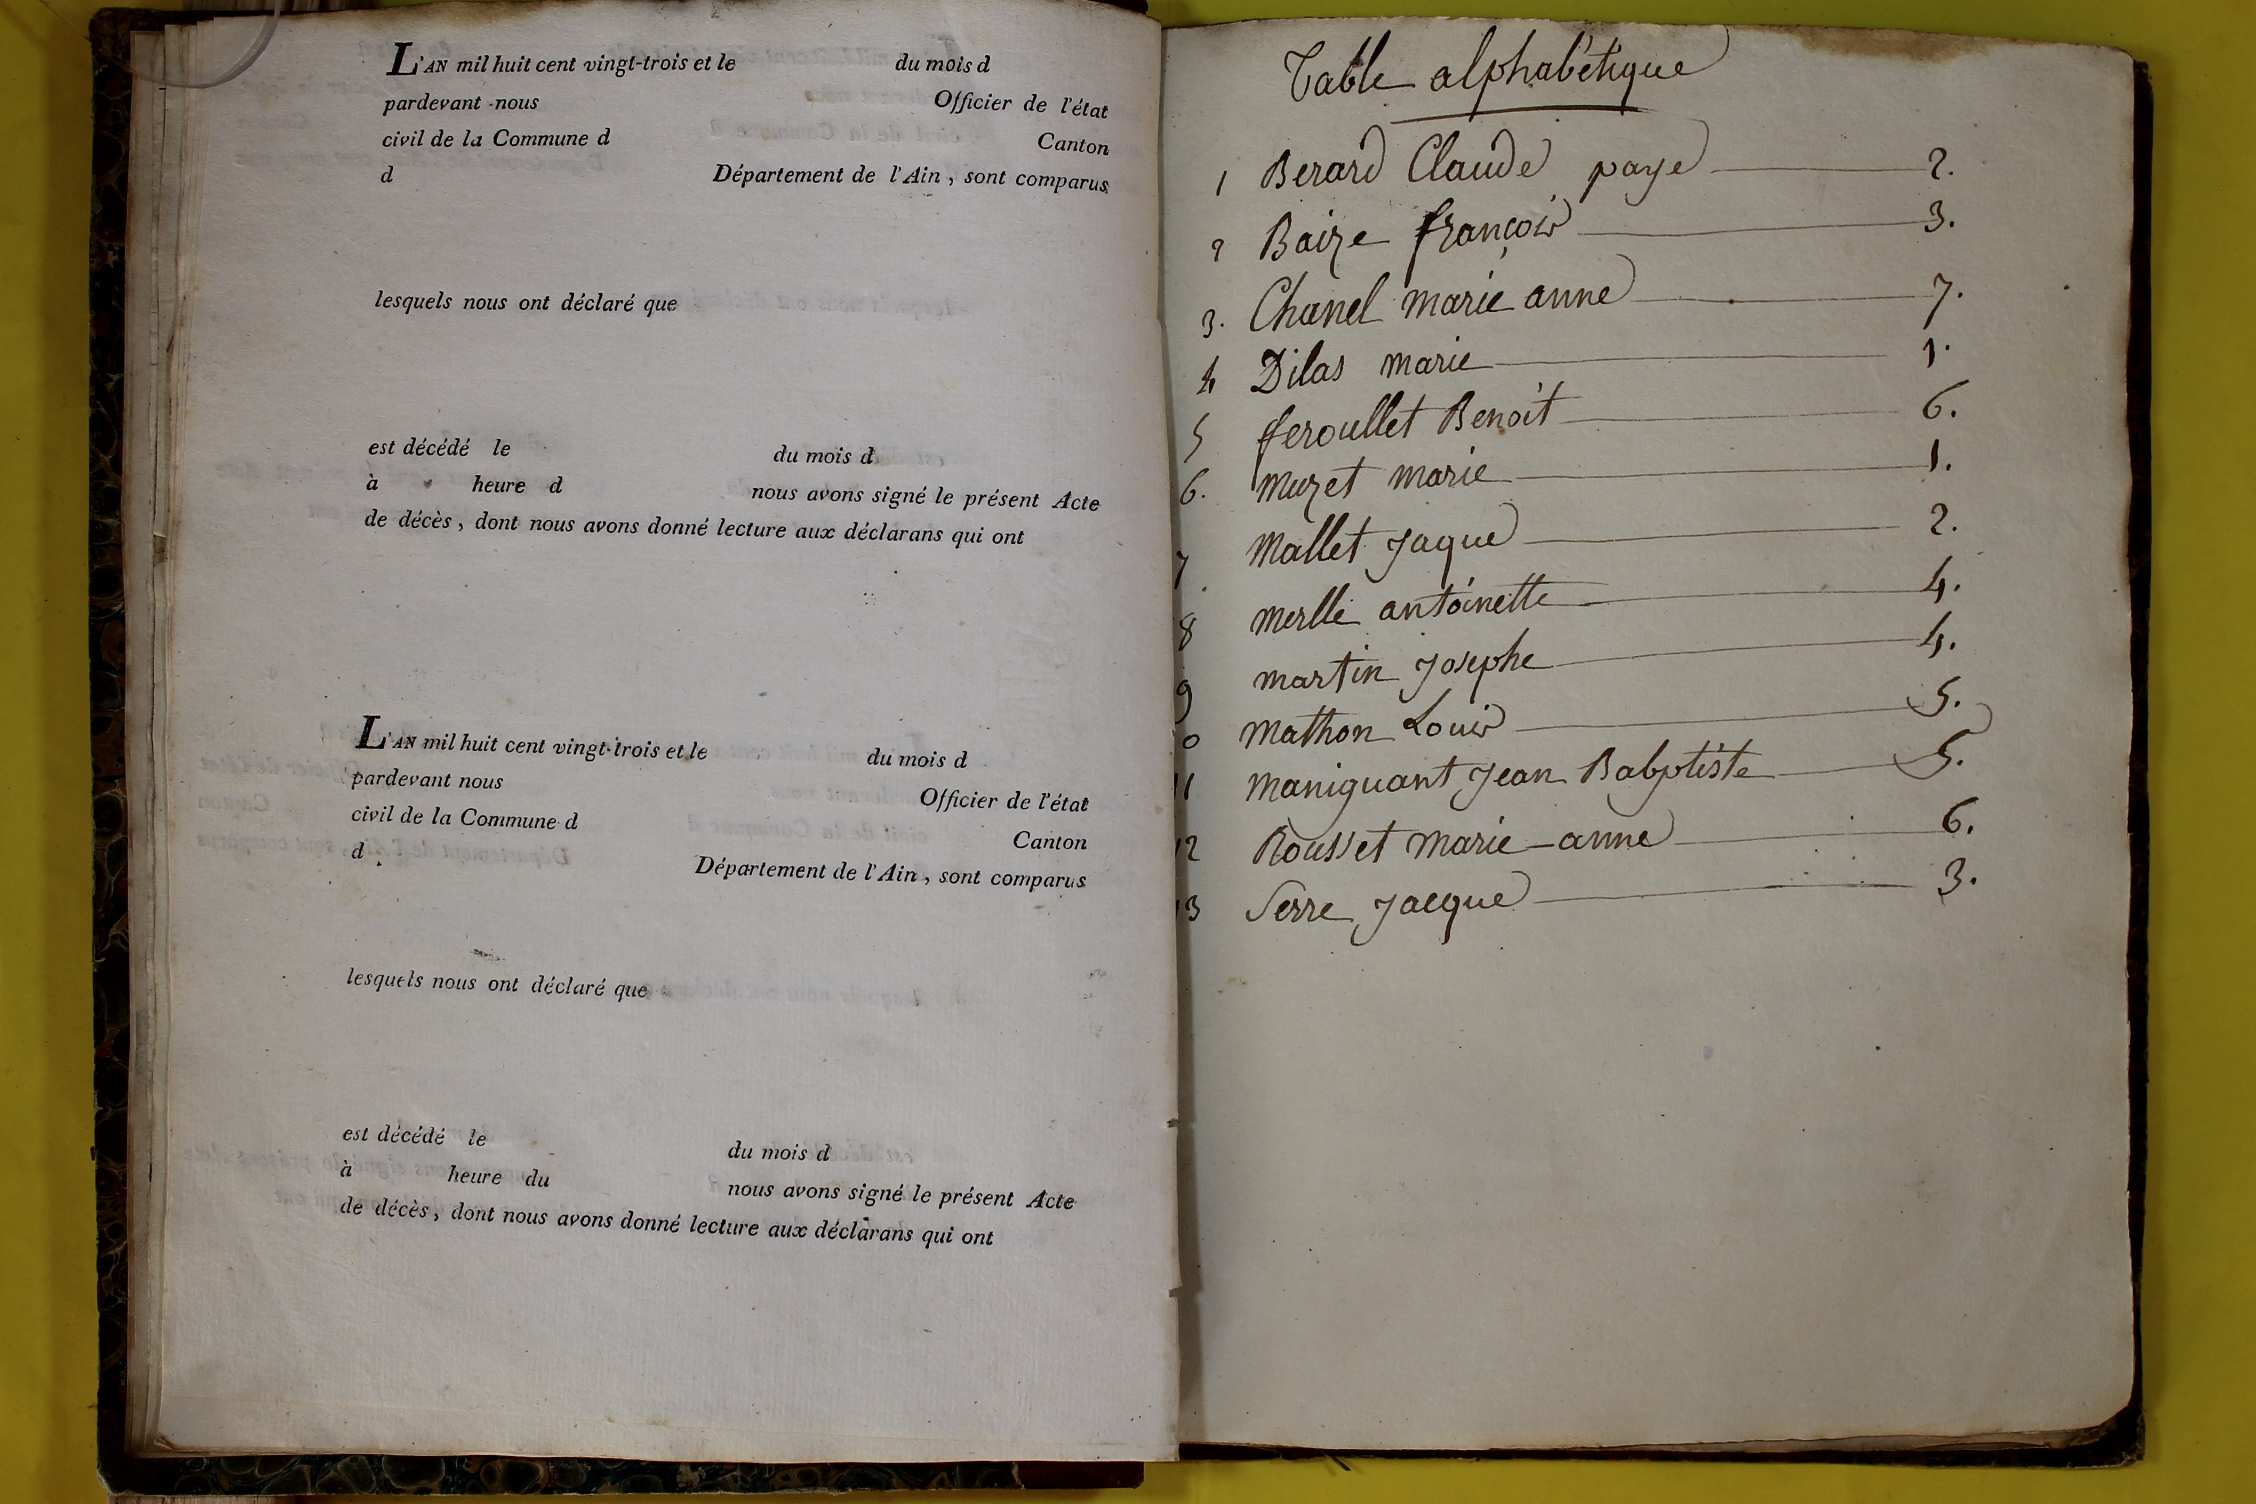 L'AN mil huit cent vingt-trois et le du mois d
pardevant nous Officier de l'état
civil de la Commune d Canton
d Département de l'Ain, sont comparus
lesquels nous ont déclaré que
est décédé le du mois d
à heure d nous avons signé le présent Acte
de décès, dont nous avons donné lecture aux déclarans qui ont
L'AN mil huit cent vingt-trois et le du mois d
pardevant nous Officier de l'état
civil de la Commune d Canton
d Département de l'Ain, sont comparus
lesquels nous ont déclaré que
est décédé le du mois d
à heure du nous avons signé le présent Acte
de décès, dont nous avons donné lecture aux déclarans qui ont
Table alphabétique
1 Berard Claude paye 2.
2 Baize françois 3.
3. Chanel marie anne 7.
4 Dilas marie 1.
5 feroullet Benoit 6.
6. muzet marie 1.
7 Mallet Jaque 2.
8 merlle antoinette 4.
9 martin Josephe 4.
0 Mathon Louis 5.
11 Maniguant Jean Babptiste 5.
12 Rousset Marie-anne 6.
13 Serre Jacque 3.